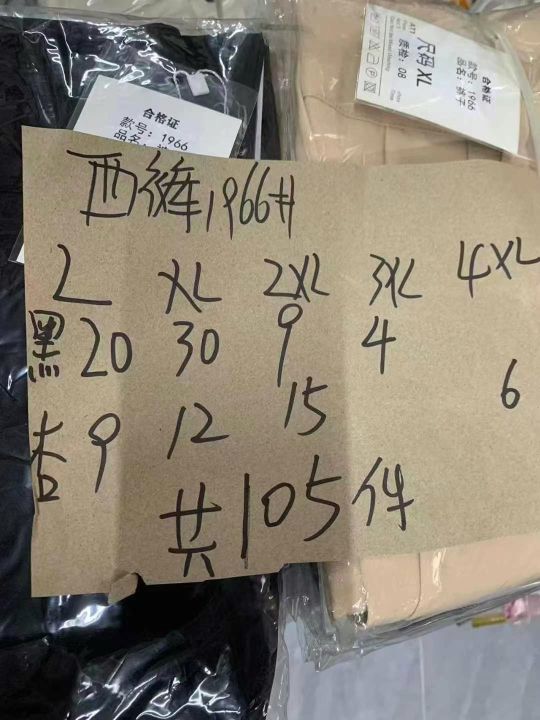 合格证
款号: 1966
品名:
尺码 XL
质检: 08
合格证
款号: 1966
品名: 裤子
西裤1966#
L XL 2XL 3XL 4XL
黑 20 30 9 4
6
杏 9 12 15
共105件